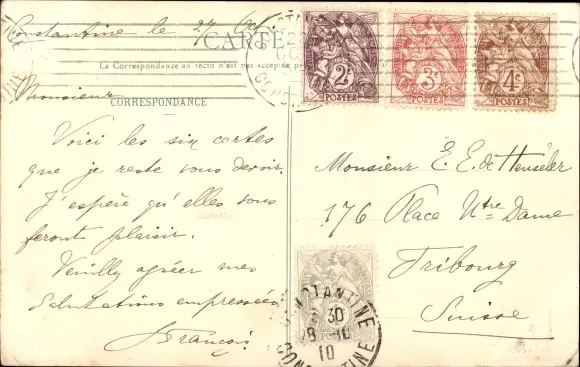 Constantine le 27 Oct.
CARTE
La Correspondance au recto n'est pas acceptée pa
CORRESPONDANCE
Monsieur
Voici les six cartes
que je reste vous devoir.
J'espère qu'elles vous
feront plaisir.
Veuillez agréer mes
Salutations empressées
François
2c
POSTES
3c
POSTES
4c
POSTES
Monsieur E. E. de Henseler
176 Place Ntre Dame
Fribourg
Suisse
CONSTANTINE
30
8-10
10
CONSTANTINE